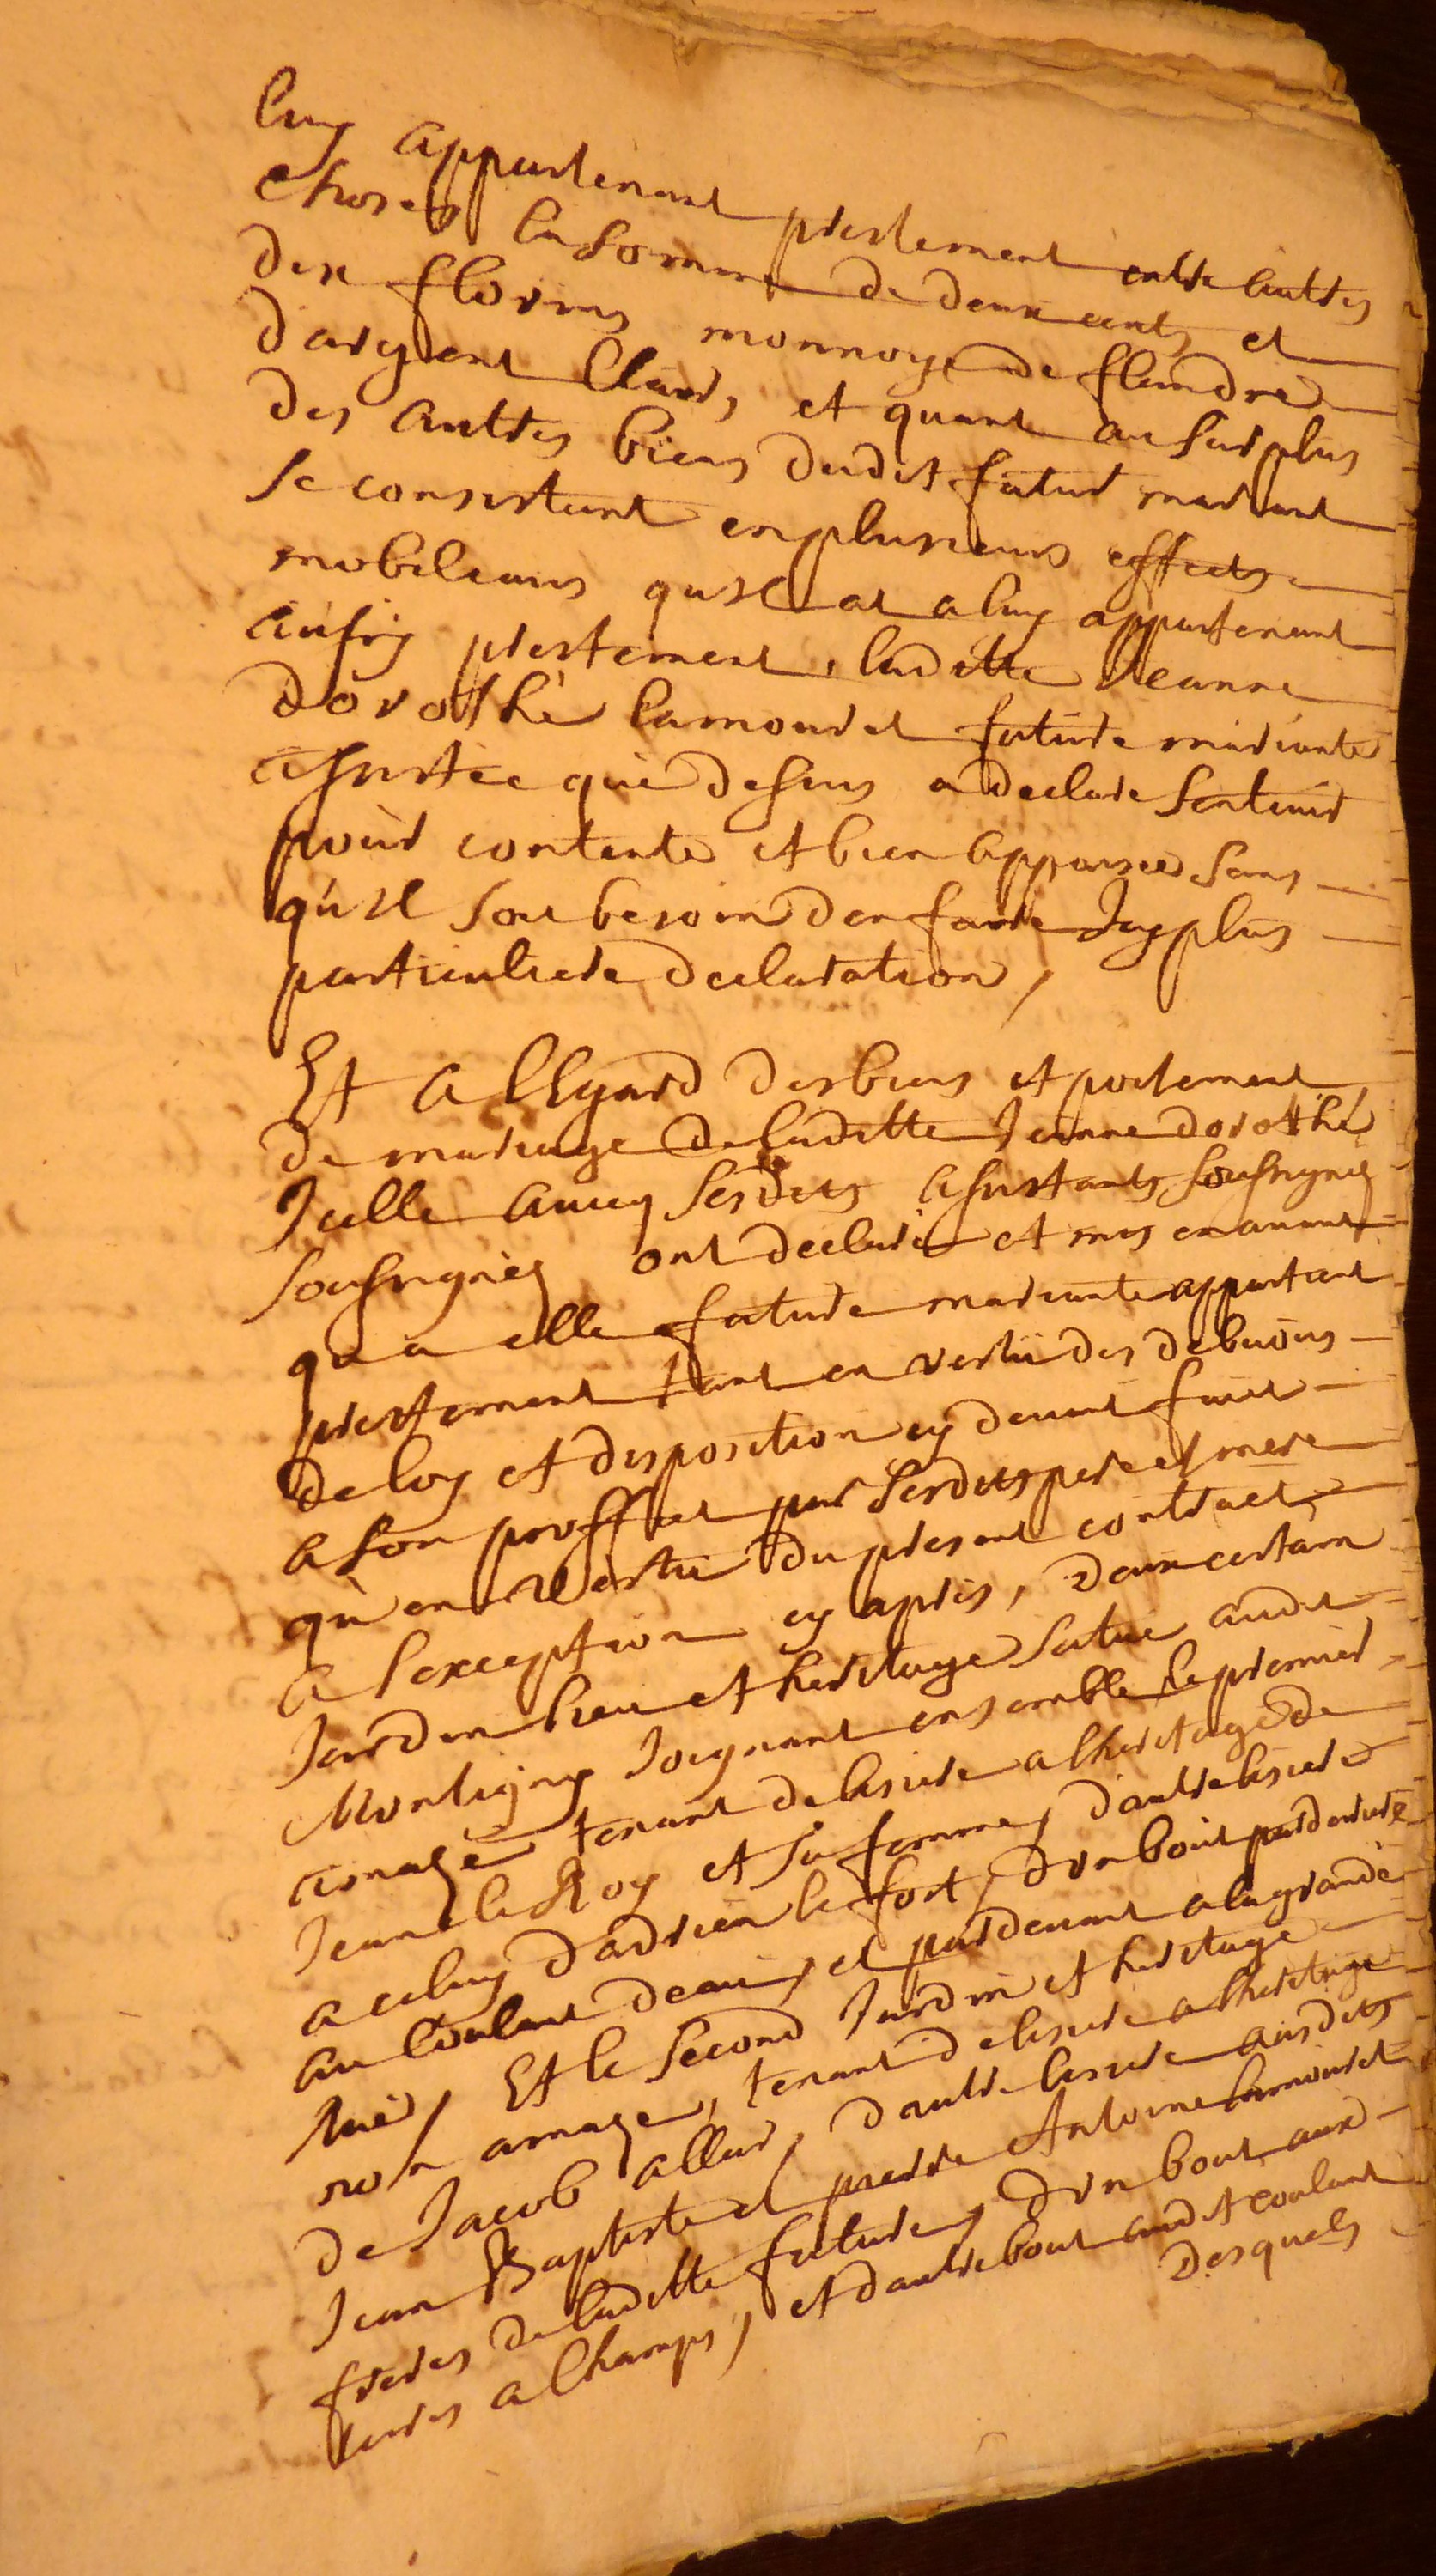 luy appartenant prestement entre autres
choses la somme de deux cents et
dix florins monnoye de flandre
d'argent clair, et quant au surplus
des autres biens dudit futur mariant
se consistant en plusieurs effects
mobiliairs qu'il at a luy appartenant
aussy prestement, laditte Jeanne
dorothé Lamouret future mariante
assistée que dessus a declare sentenir
pour contente et bien appaisée sans
qu'il soit besoin d'en faire Icy plus
particuliere declaration,
Et a Legard des biens et portement
de mariage de laditte Jeanne dorothé
Icelle avecq sesdits assistants soussignés
soussignés ont declaré et mis en avant
qu a elle future mariante appartient
prestement tant en vertu des debvoirs
de loy et disposition cy devant fait
a son proffit par sesdits pere et mere
qu'en vertu du present contract
a l'exception cy apres, d'un certain
Jardin lieu et heritage situé audit
Montigny Joignant ensemble le premier
amazé tenant de lisiere a lheritage de
Jean le Roy et sa femme, d'autre lisiere
a celuy d'adrien le fort, d'un bout par derriere
au Coulant d'eau, et par devant a la grande
Rue, Et le second Jardin et heritage
non amazé, tenant de lisiere a lheritage
de Jacob allar, d'autre lisiere ausdits
Jean Baptiste et pierre Antoine Lamouret
freres de laditte future, d'un bout aux
terres a Champs, et d'autre bout audit coulant
Desquels